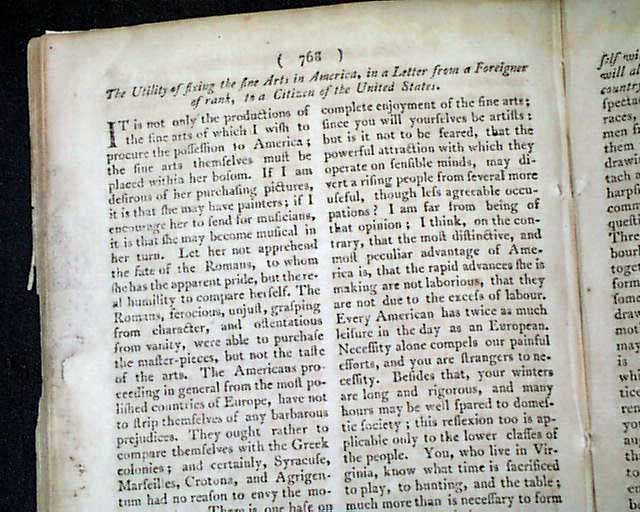 ( 768 )
The Utility of fixing the fine Arts in America, in a Letter from a Foreigner
of rank, to a Citizen of the United States.
IT is not only the productions of
the fine arts of which I wish to
procure the possession to America;
the fine arts themselves must be
placed within her bosom. If I am
desirous of her purchasing pictures,
it is that she may have painters; if I
encourage her to send for musicians,
it is that she may become musical in
her turn. Let her not apprehend
the fate of the Romans, to whom
she has the apparent pride, but there-
al humility to compare herself. The
Romans, ferocious, unjust, grasping
from character, and ostentatious
from vanity, were able to purchase
the master-pieces, but not the taste
of the arts. The Americans pro-
ceeding in general from the most po-
lished countries of Europe, have not
to strip themselves of any barbarous
prejudices. They ought rather to
compare themselves with the Greek
colonies; and certainly, Syracuse,
Marseilles, Crotona, and Agrigen-
tum had no reason to envy the mo-
There is one base on
complete enjoyment of the fine arts;
since you will yourselves be artists:
but is it not to be feared, that the
powerful attraction with which they
operate on sensible minds, may di-
vert a rising people from several more
useful, though less agreeable occu-
pations? I am far from being of
that opinion; I think, on the con-
trary, that the most distinctive, and
most peculiar advantage of Ame-
rica is, that the rapid advances she is
making are not laborious, that they
are not due to the excess of labour.
Every American has twice as much
leisure in the day as an European.
Necessity alone compels our painful
efforts, and you are strangers to ne-
cessity. Besides that, your winters
are long and rigorous, and many
hours may be well spared to domes-
tic society; this reflexion too is ap-
plicable only to the lower classes of
the people. You, who live in Vir-
ginia, know what time is sacrificed
to play, to hunting, and the table;
much more than is necessary to form
self wi
will al
country
specta
races,
men
them
drawi
tach a
harpi
comm
questi
Three
bourl
toget
form
som
draw
mot
may
is
whi
tice
rest
you
an
tha
to
en
be